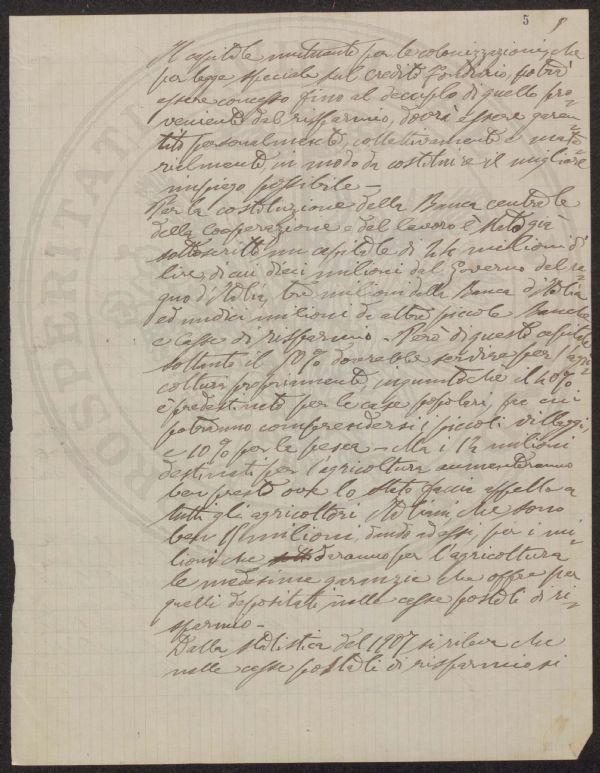 5
Il capitale mutuante per le colonizzazioni, che
per legge speciale sul credito fondiario, potrà
essere concesso fino al decuplo di quello pro-
veniente dal risparmio, dovrà essere garan-
tito personalmente, collettivamente e mate-
rialmente, in modo da costituire il migliore
impiego possibile -
Per la costituzione della Banca centrale
della Cooperazione e del lavoro è stato già
sottoscritto un capitale di 24 milioni di
lire, di cui dieci milioni dal Governo del re-
gno d'Italia, tre milioni dalla Banca d'Italia
ed undici milioni da altre piccole Banche
e Casse di risparmio - Però di questo capitale
soltanto il 50% dovrebbe servire per l'agri-
coltura propriamente, inquantoche il 40%
è predestinato per le case popolari, fra cui
potranno comprendersi i piccoli villaggi,
e 10% per la pesca - Ma i 12 milioni
destinati per l'agricoltura aumenteranno
ben presto ove lo Stato faccia appello a
tutti gli agricoltori Italiani che sono
ben milioni, dando ad essi, per i mi-
lioni che daranno per l'agricoltura
le medesime garanzie che offre per
quelli depositati nelle casse postali di ri-
sparmio -
Dalla statistica del 1907 si rileva che
nelle casse postali di risparmio si
PROSPERITATI